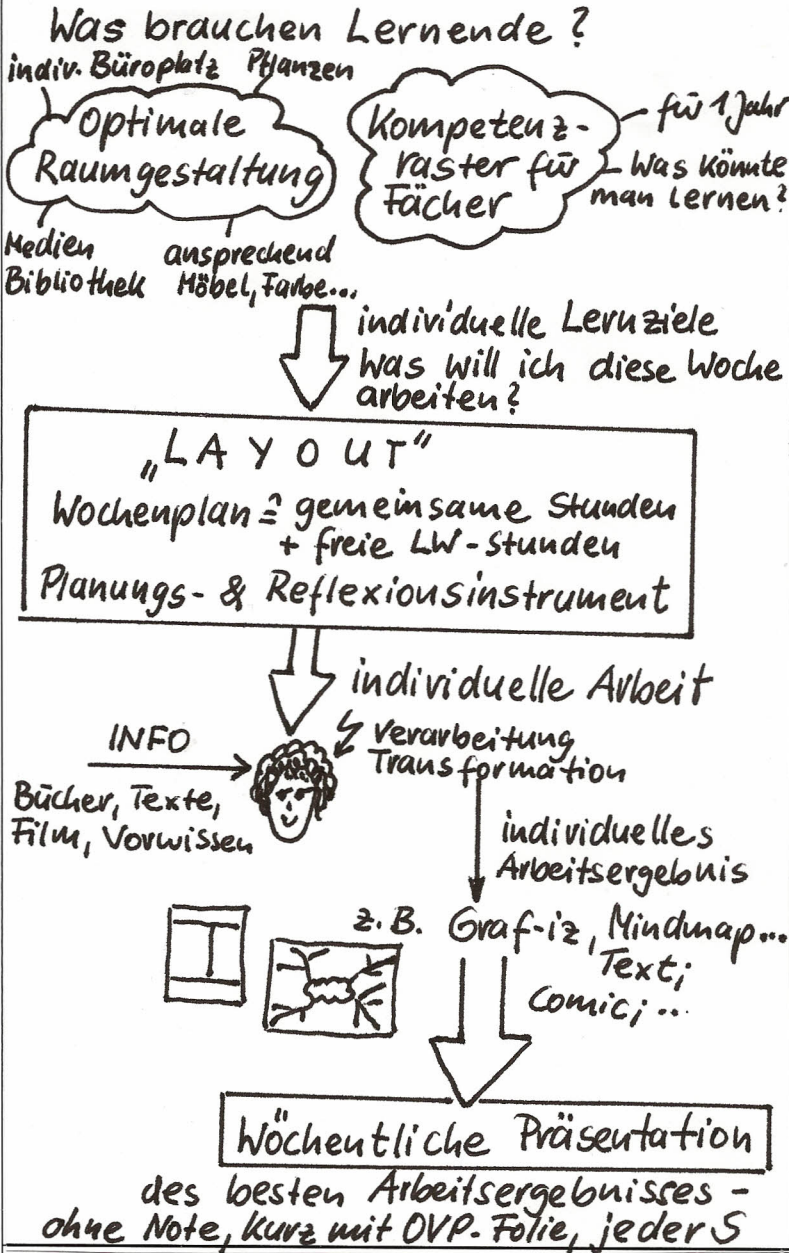 Was brauchen Lernende?
indiv. Büroplatz Pflanzen
Optimale
Raumgestaltung
Medien
Bibliothek
ansprechend
Möbel, Farbe...
Kompetenz-
raster für
Fächer
für 1 Jahr
Was könnte
man lernen?
individuelle Lernziele
Was will ich diese Woche
arbeiten?
„LAYOUT"
Wochenplan ≙ gemeinsame Stunden
+ freie LW-Stunden
Planungs- & Reflexionsinstrument
individuelle Arbeit
INFO
Bücher, Texte,
Film, Vorwissen
Verarbeitung
Transformation
individuelles
Arbeitsergebnis
z.B. Graf-iz, Mindmap...
Text;
Comic; ..
Wöchentliche Präsentation
des besten Arbeitsergebnisses -
ohne Note, kurz mit OVP-Folie, jeder S